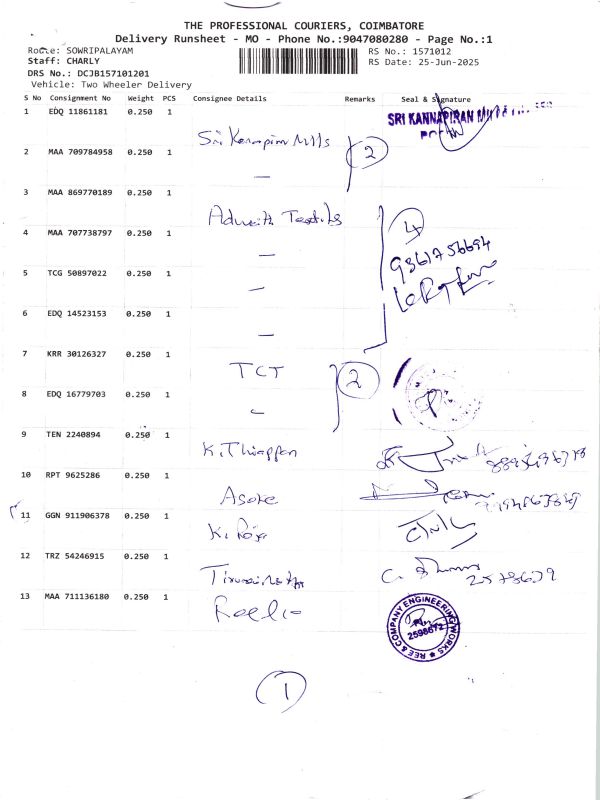 THE PROFESSIONAL COURIERS, COIMBATORE
Delivery Runsheet - MO - Phone No.:9047080280 - Page No.:1
Route: SOWRIPALAYAM
RS No.: 1571012
Staff: CHARLY
RS Date: 25-Jun-2025
DRS No.: DCJB157101201
Vehicle: Two Wheeler Delivery
S No Consignment No Weight PCS Consignee Details Remarks Seal & Signature
1 EDQ 11861181 0.250 1 Sri Kannapiran Mills SRI KANNAPIRAN
2 MAA 709784958 0.250 1 — 2
3 MAA 869770189 0.250 1 Adwaith Textiles
4 MAA 707738797 0.250 1 — 4
9361756694
5 TCG 50897022 0.250 1 —
6 EDQ 14523153 0.250 1 —
7 KRR 30126327 0.250 1 TCT
8 EDQ 16779703 0.250 1 2
9 TEN 2240894 0.250 1 K. Thiappan
10 RPT 9625286 0.250 1 Asoke
11 GGN 911906378 0.250 1 K. Roja
12 TRZ 54246915 0.250 1 C.
13 MAA 711136180 0.250 1 REE & COMPANY ENGINEERING WORKS
2598672
1